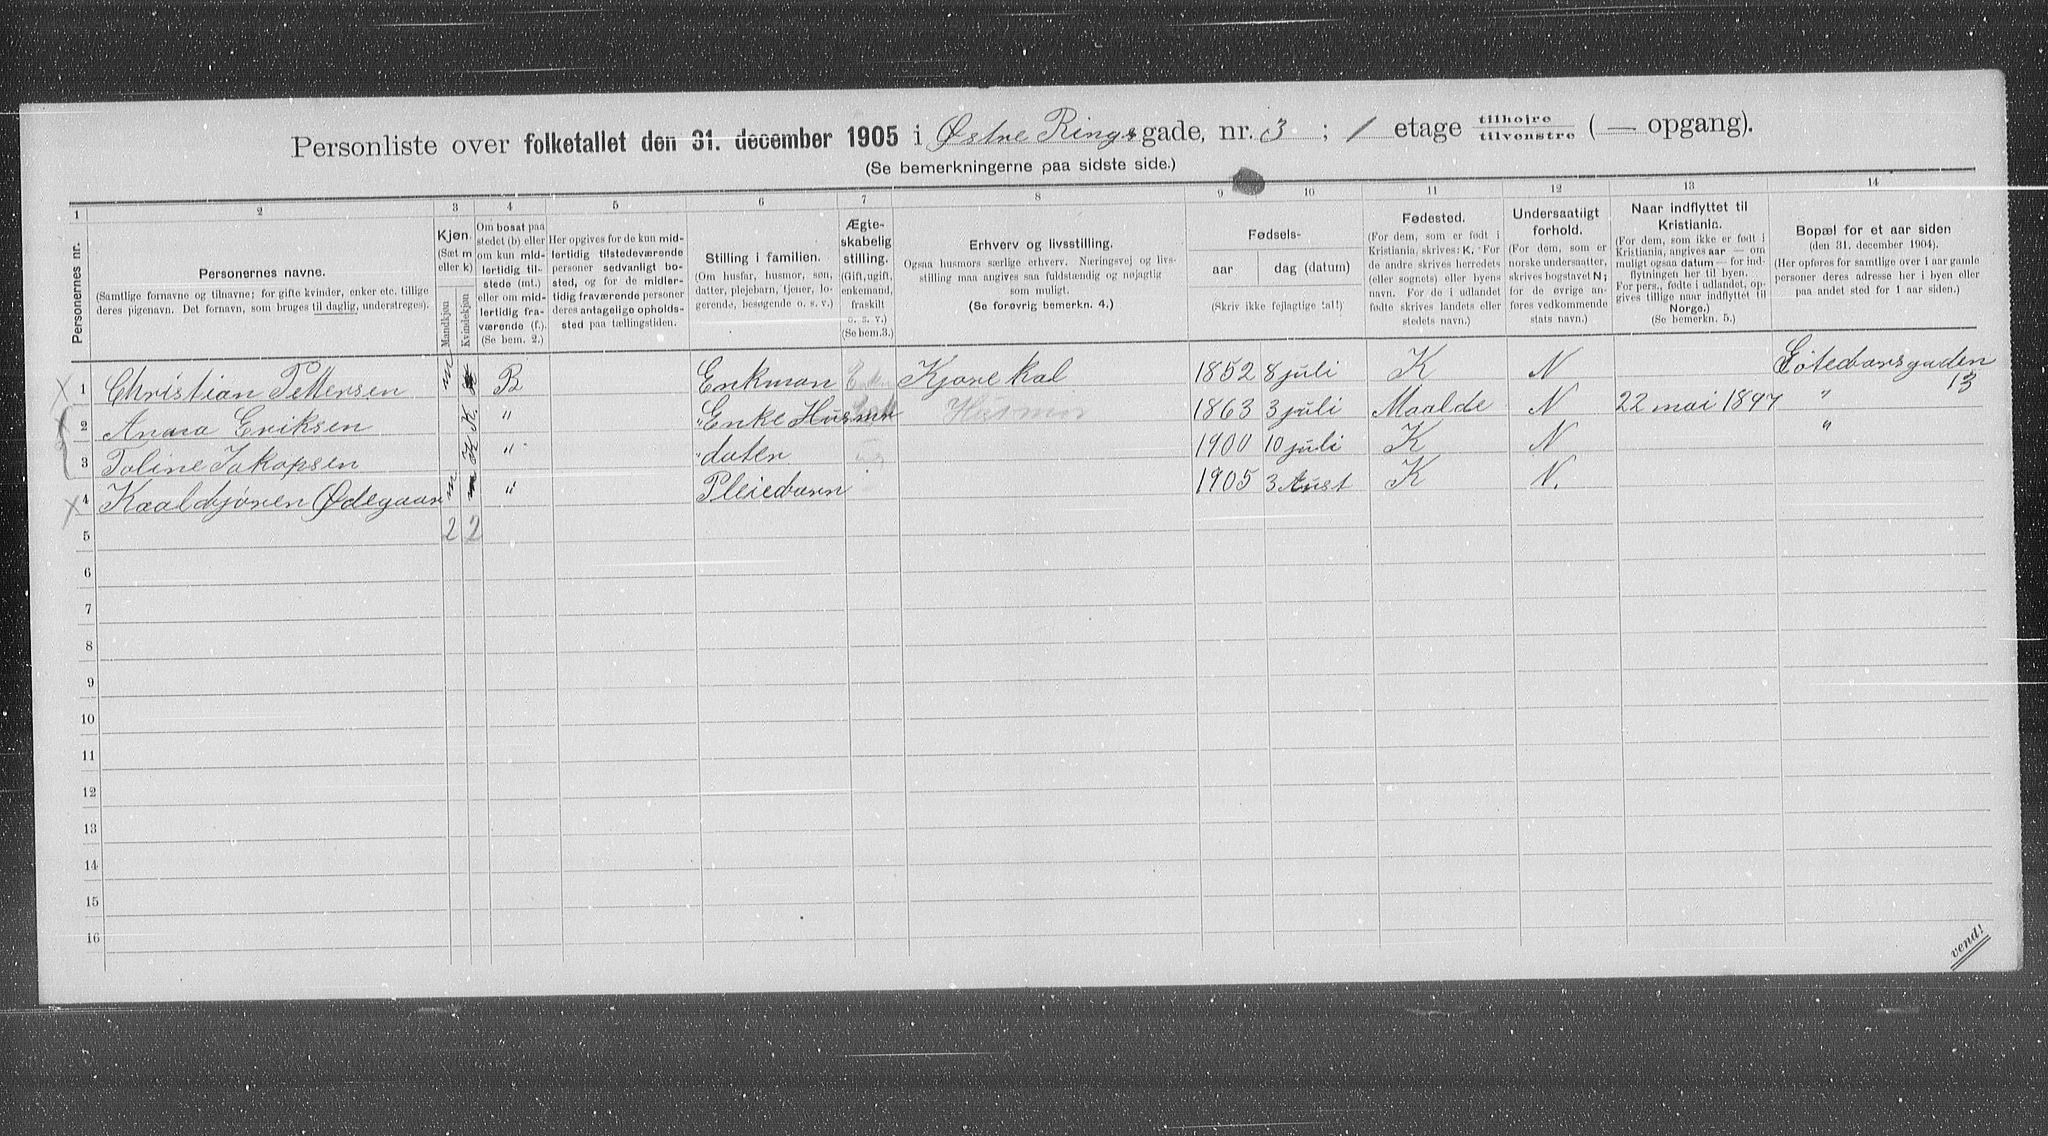 Personliste over folketallet den 31. december 1905 i Østre Rings gade, nr. 3 ; 1 etage tilhøjre / tilvenstre ( — opgang).
(Se bemerkningerne paa sidste side.)
1 2 3 4 5 6 7 8 9 10 11 12 13 14
Personernes nr.
Personernes navne.
(Samtlige fornavne og tilnavne; for gifte kvinder, enker etc. tillige
deres pigenavn. Det fornavn, som bruges til daglig, understreges).
Kjøn.
(Sæt m
eller k)
Mandkjøn
Kvindekjøn
Om bosat paa
stedet (b) eller
om kun mid-
lertidig til-
stede (mt.)
eller om mid-
lertidig fra-
værende (f.).
(Se bem. 2.)
Her opgives for de kun mid-
lertidig tilstedeværende
personer sedvanligt bo-
sted, og for de midler-
tidig fraværende personer
deres antagelige opholds-
sted paa tællingstiden.
Stilling i familien.
(Om husfar, husmor, søn,
datter, plejebarn, tjener, lo-
gerende, besøgende o. s. v.)
Ægte-
skabelig
stilling.
(Gift, ugift,
enkemand,
fraskilt
o. s. v.)
(Se bem.3.)
Erhverv og livsstilling.
Ogsaa husmors særlige erhverv. Næringsvej og livs-
stilling maa angives saa fuldstændig og nøjagtig
som muligt.
(Se forøvrig bemerkn. 4.)
Fødsels-
aar dag (datum)
(Skriv ikke fejlagtige tal!)
Fødested.
(For dem, som er født i
Kristiania, skrives: K. For
de andre skrives herredets
(eller sognets) eller byens
navn. For de i udlandet
fødte skrives landets eller
stedets navn.)
Undersaatligt
forhold.
(For dem, som er
norske undersaatter,
skrives bogstavet N;
for de øvrige an-
føres vedkommende
stats navn.)
Naar indflyttet til
Kristiania.
(For dem, som ikke er født i
Kristiania, angives aar — om
muligt ogsaa datum — for ind-
flytningen her til byen.
For pers., fødte i udlandet, op-
gives tillige naar indflyttet til
Norge.)
(Se bemerkn. 5.)
Bopæl for et aar siden
(den 31. december 1904).
(Her opføres for samtlige over 1 aar gamle
personer deres adresse her i byen eller
paa andet sted for 1 aar siden.)
1 Christian Pettersen m B Enkman Kjørekal 1852 8 juli K N Gøteborsgaden 13
2 Anna Eriksen K. " "Enke Husmor 1863 3 juli Maalde N 22 mai 1897 "
3 Toline Jakopsen K " "dater 1900 10 juli K N "
4 Kaalbjørnen (Ødegaar m " Pleiebarn 1905 3 Aust K N.
5 2 2
6
7
8
9
10
11
12
13
14
15
16
vend!